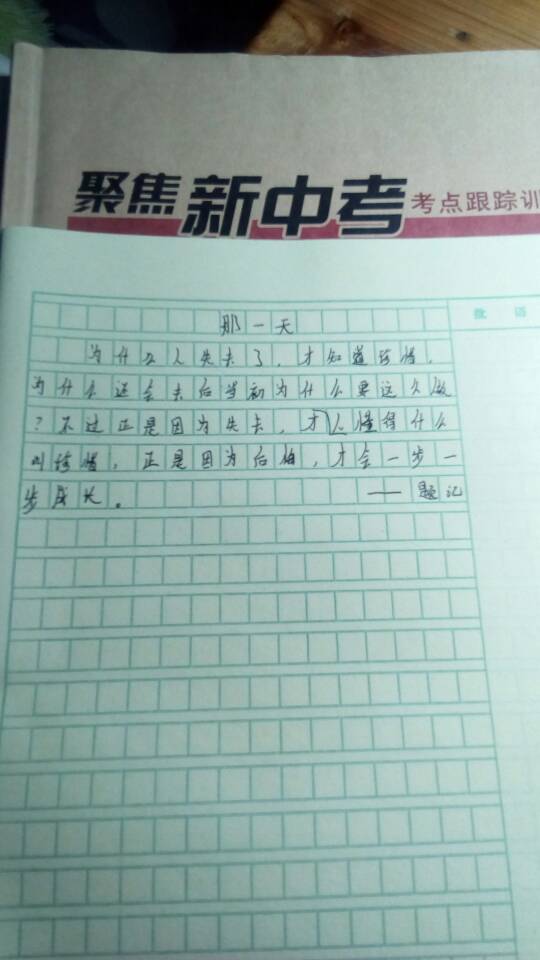 聚焦新中考 考点跟踪训
批 语
那一天
为什么人失去了，才知道珍惜，
为什么还会去后当初为什么要这么做
？不过正是因为失去，才人懂得什么
叫珍惜，正是因为后怕，才会一步一
步成长。 ——题记